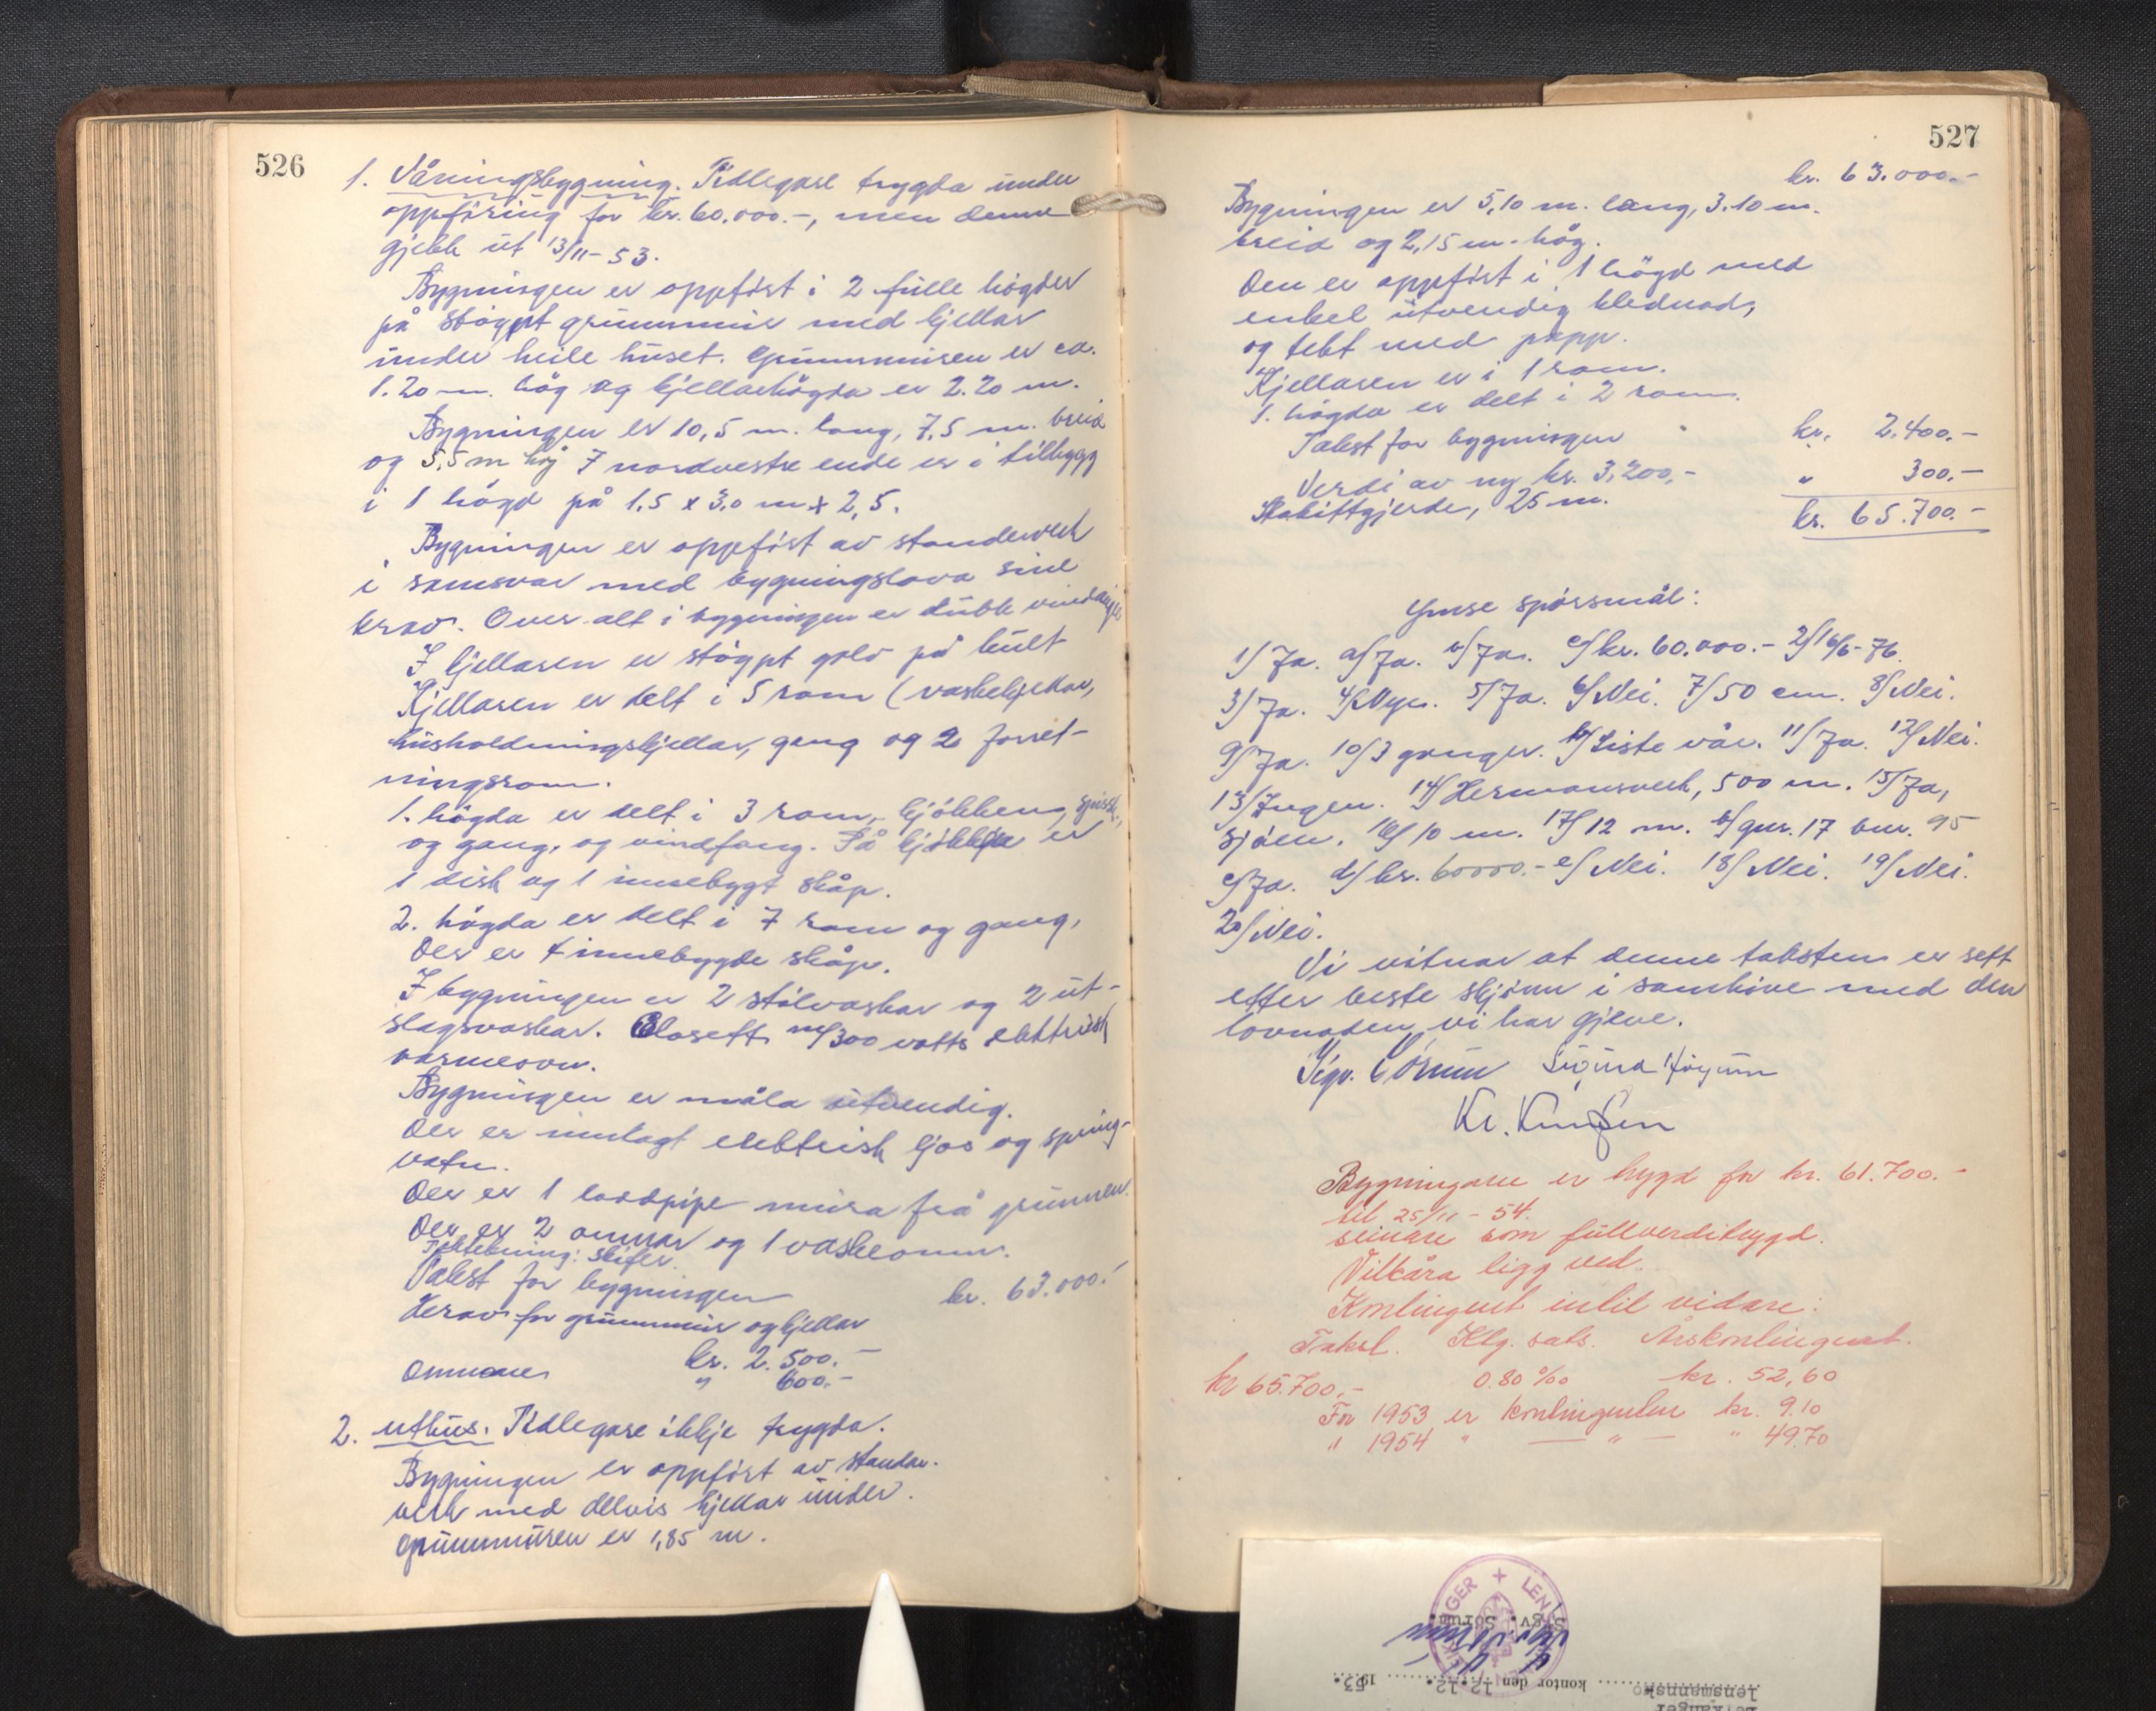 526
1. Våningsbygning. Tidlegare trygda under
oppföring for kr. 60.000.-, men denne
gjekk ut 13/11-53.
Bygningen er oppfört i 2 fulle högder
på stöypt grunnmur med kjellar
under heile huset. Grunnmuren er ca.
1.20 m. hög og kjellarhögda er 2.20 m.
Bygningen er 10,5 m. lang, 7,5 m. breid
og 5,5 m høj I nordvestre ende er i tilbygg
i 1 högd på 1.5 x 3,0 m x 2,5.
Bygningen er oppfört av standerverk
i samsvar med bygningslova sine
krav. Over alt i bygningen er dubb.
I kjellaren er stöypt golv på kult
Kjellaren er delt i 5 rom (vaskekjellar,
husholdningskjellar, gang og 2 forret-
ningsrom.
1. högda er delt i 3 rom, kjökken, spissk.,
og gang, og vindfang. På kjökken er
1 disk og 1 innebygt skåp.
2. högda er delt i 7 rom og gang,
Der er 4 innebygde skåp.
I bygningen er 2 stålvaskar og 2 ut-
slagsvaskar. Closett m/300 watts elektrisk
varmeovn.
Bygningen er måla utvendig.
Der er innlagt elektrisk ljos og spring-
vatn.
Der er 1 loddpipe mura frå grunnen.
Der er 2 omnar og 1 vaskeomn.
Taktekning: skifer.
Takst for bygningen kr. 63.000.-
Herav for grunnmur og kjellar
kr. 2.500.-
Omnane " 600.-
2. Uthus. Tidlegare ikkje trygda.
Bygningen er oppfört av standar-
verk med delvis kjellar under.
Grunnmuren er 1,85 m.
527
kr. 63.000.-
Bygningen er 5,10 m. lang, 3.10 m.
breid og 2,15 m. hög.
Den er oppfört i 1 högd med
enkel utvendig klednad,
og tekt med papp.
Kjellaren er i 1 rom.
1. högda er delt i 2 rom.
Takst for bygningen kr. 2.400.-
Verdi av ny kr. 3.200,-
Stakittgjerde, 25 m. " 300.-
kr. 65.700.-
Ymse spörsmål:
1/ Ja. a/ Ja. b/ Ja. c/ kr. 60.000.- 2/ 16/6-76.
3/ Ja. 4/ Nye. 5/ Ja. 6/ Nei. 7/ 50 cm. 8/ Nei.
9/ Ja. 10/ 3 gonger. b/ Siste vår. 11/ Ja. 12/ Nei.
13/ Ingen. 14/ Hermansverk, 500 m. 15/ Ja,
sjöen. 16/ 10 m. 17/ 12 m. b/ gnr. 17 bnr. 95
c/ Ja. d/ kr. 60000.- e/ Nei. 18/ Nei. 19/ Nei.
20/ Nei.
Vi vitnar at denne taksten er sett
etter beste skjönn i samhöve med den
lovnaden vi har gjeve.
Sigv. Sörum Sigurd
Kr. Knutsen
Bygningane er trygd for kr. 61.700.-
til 25/11-54.
seinare som fullverditrygd.
Vilkåra ligg ved.
Kontingent intil vidare:
Takst. Klg. sats. Årskontingent.
kr 65.700,- 0.80 ‰ kr. 52,60
For 1953 er kontingenten kr. 9.10
" 1954 " — " — " 49.70
Sigv. Sörum.
kontor den 12.12. 1953.
lensmannsko
Leikanger